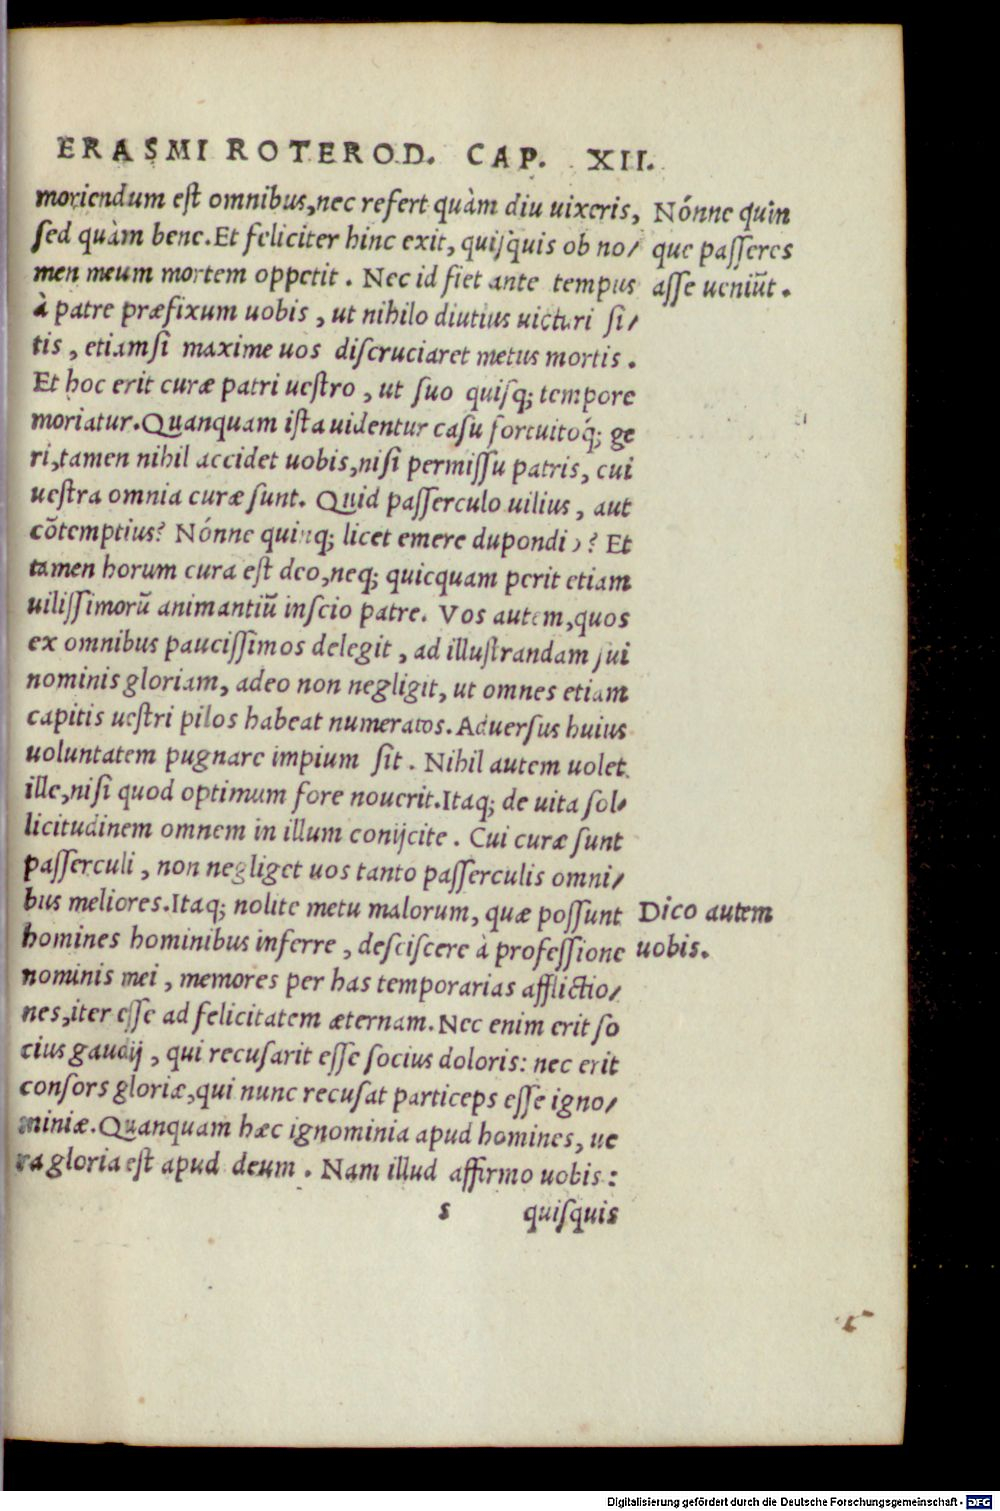 ERASMI ROTEROD. CAP. XII.
moriendum est omnibus, nec refert quàm diu uixeris,
sed quàm bene. Et feliciter hinc exit, quisquis ob no/
men meum mortem oppetit. Nec id fiet ante tempus
à patre præfixum uobis, ut nihilo diutius uicturi si/
tis, etiamsi maxime uos discruciaret metus mortis.
Et hoc erit curæ patri uestro, ut suo quisq; tempore
moriatur. Quanquam ista uidentur casu fortuitoq́; ge
ri, tamen nihil accidet uobis, nisi permissu patris, cui
uestra omnia curæ sunt. Quid passerculo uilius, aut
cõtemptius? Nónne quinq; licet emere dupondio? Et
tamen horum cura est deo, neq; quicquam perit etiam
uilissimorũ animantiũ inscio patre. Vos autem, quos
ex omnibus paucissimos delegit, ad illustrandam sui
nominis gloriam, adeo non negligit, ut omnes etiam
capitis uestri pilos habeat numeratos. Aduersus huius
uoluntatem pugnare impium sit. Nihil autem uolet
ille, nisi quod optimum fore nouerit. Itaq; de uita sol/
licitudinem omnem in illum conijcite. Cui curæ sunt
passerculi, non negliget uos tanto passerculis omni/
bus meliores. Itaq; nolite metu malorum, quæ possunt
homines hominibus inferre, desciscere à professione
nominis mei, memores per has temporarias afflictio/
nes, iter esse ad felicitatem æternam. Nec enim erit so
cius gaudij, qui recusarit esse socius doloris: nec erit
consors gloriæ, qui nunc recusat particeps esse igno/
miniæ. Quanquam hæc ignominia apud homines, ue
ra gloria est apud deum. Nam illud affirmo uobis:
s quisquis
Nónne quin
que passeres
asse ueniũt.
Dico autem
uobis.
Digitalisierung gefördert durch die Deutsche Forschungsgemeinschaft - DFG